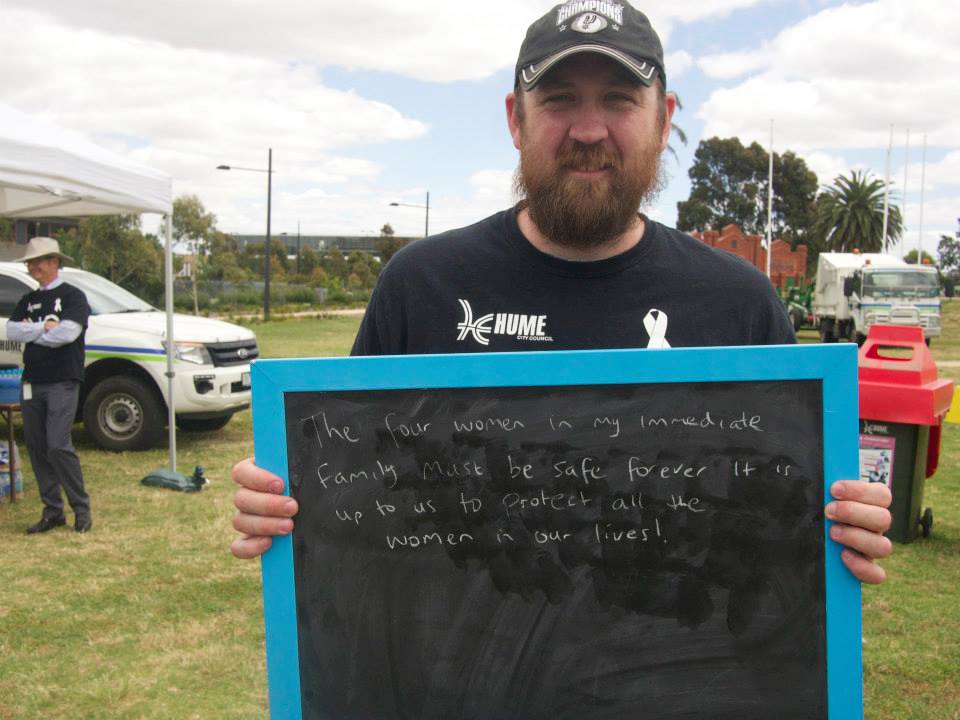 CHAMPIONS
HUME
CITY COUNCIL
HUME
The four women in my immediate
family must be safe forever It is
up to us to protect all the
women in our lives!